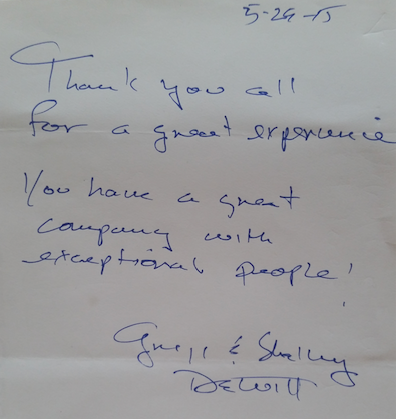 5-29-15
Thank you all
for a great experience
You have a great
company with
exceptional people!
Gregg & Shelley
DeWitt